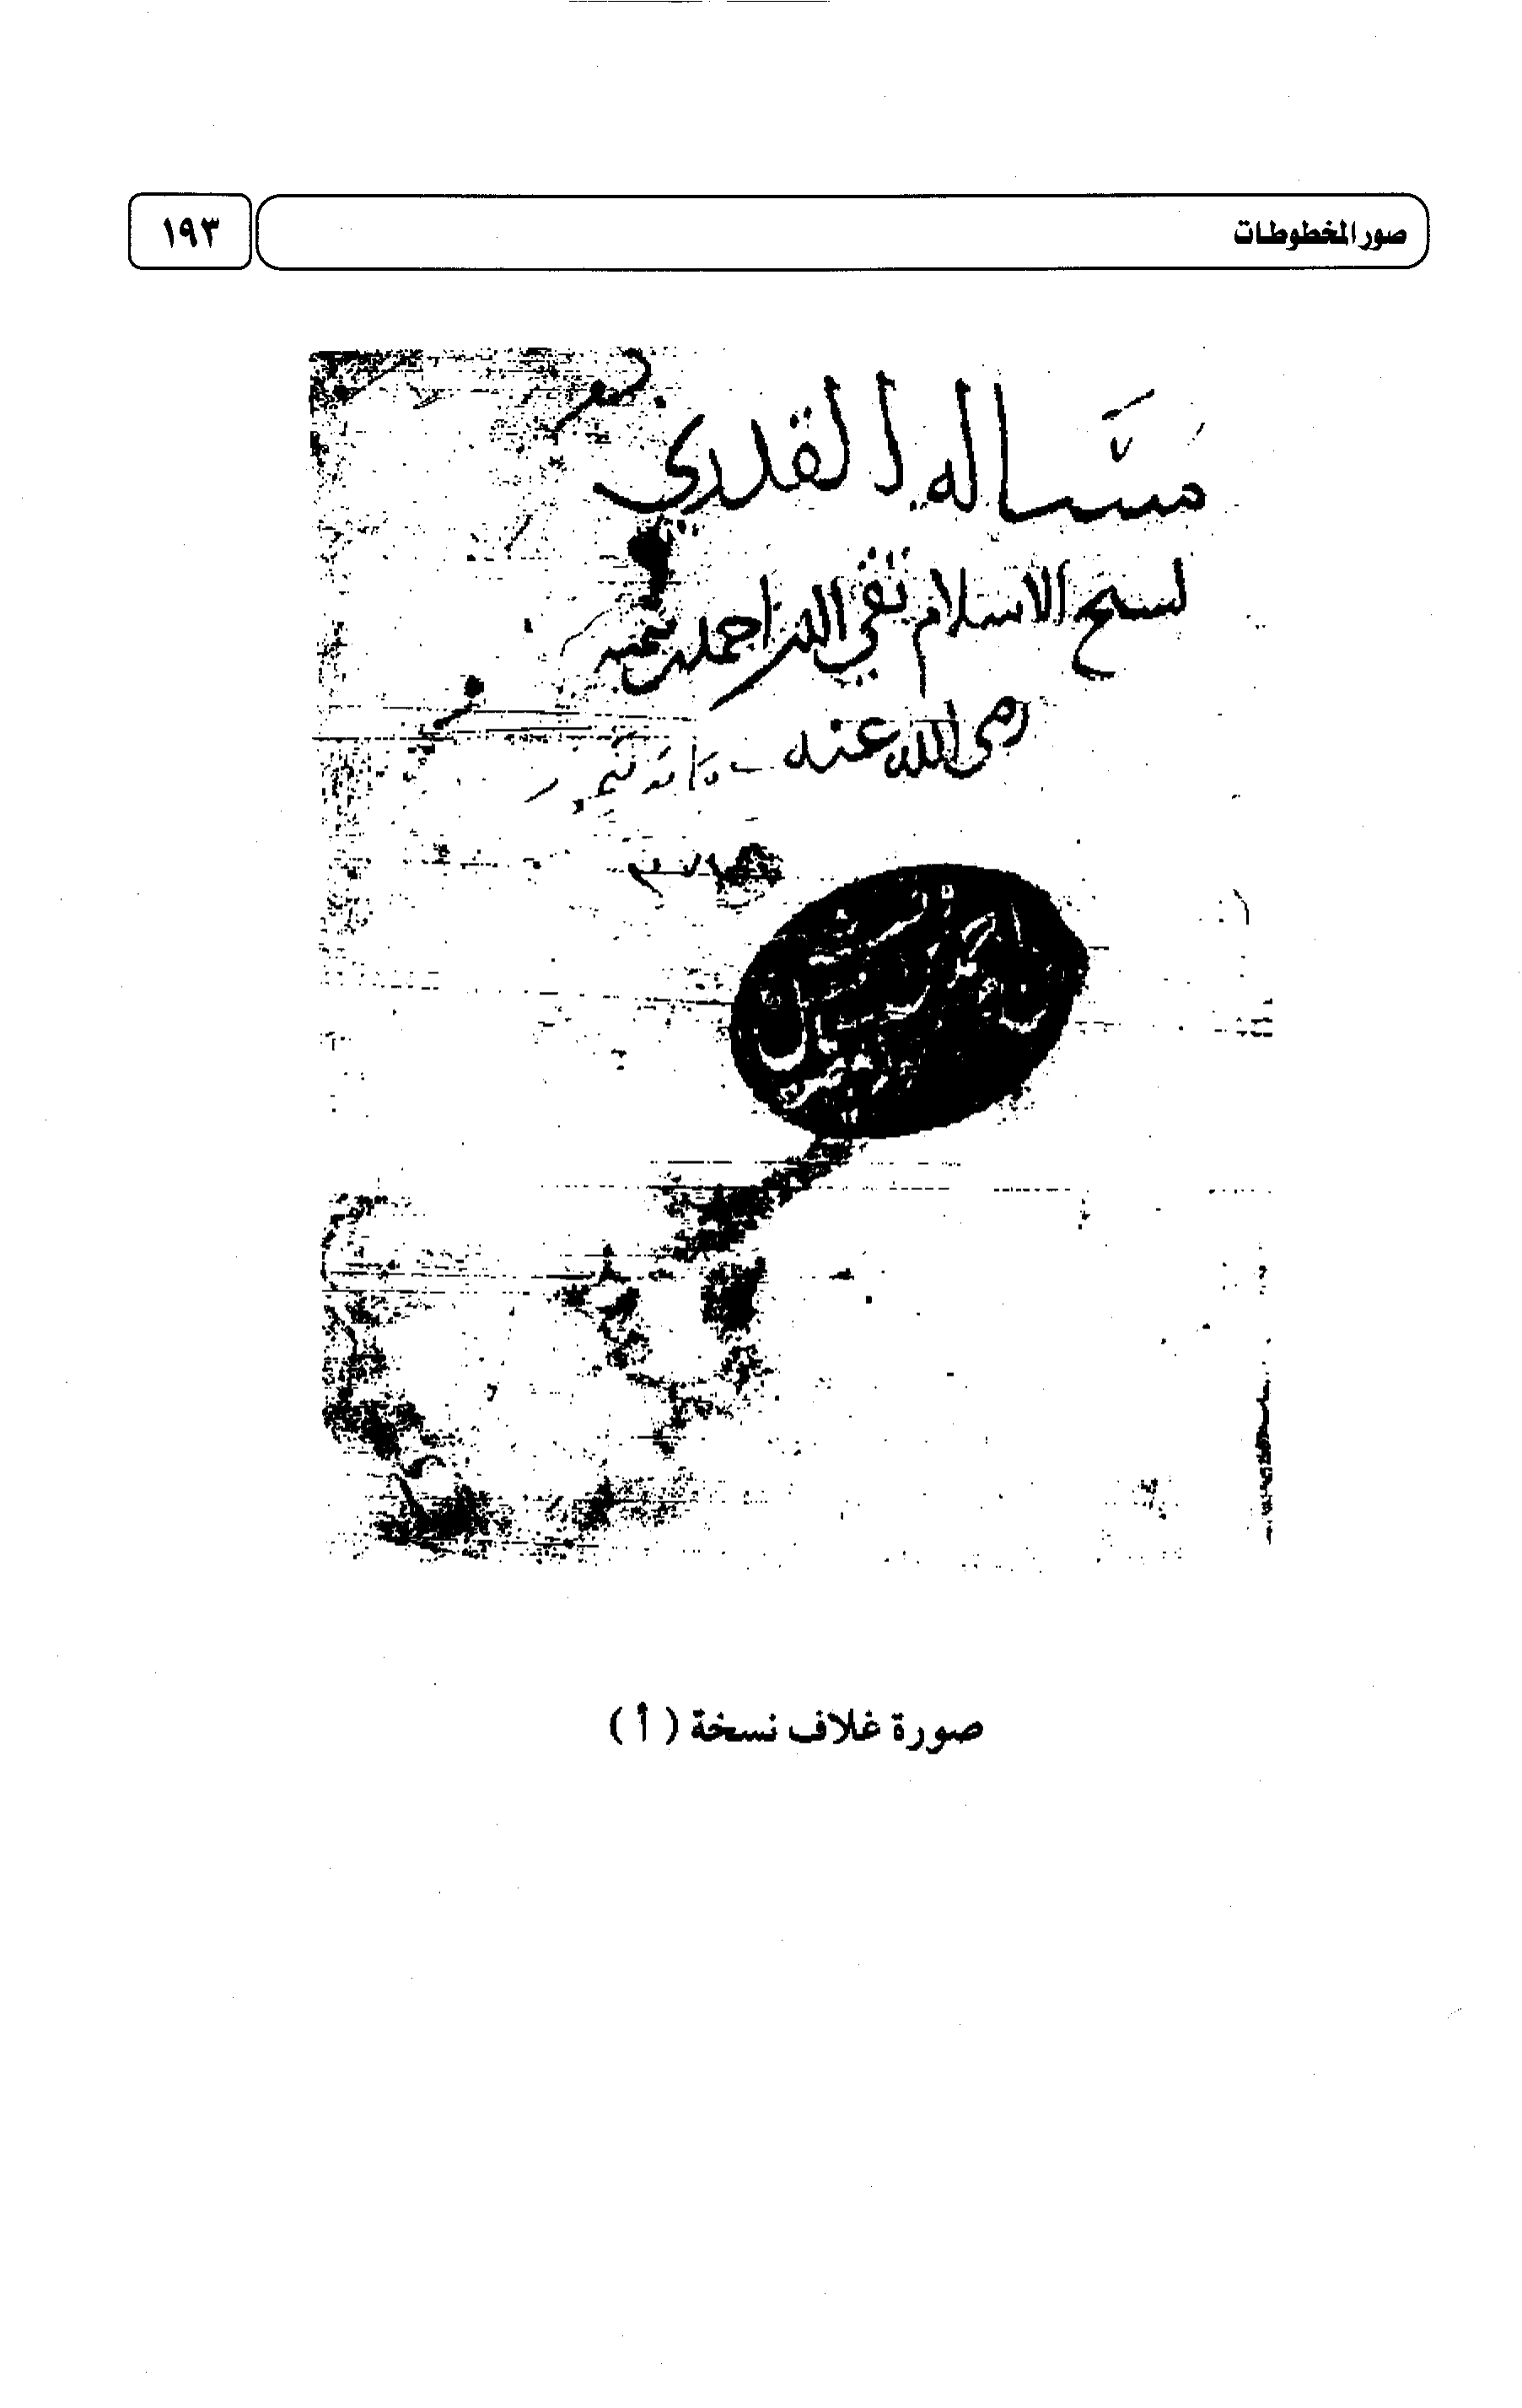 صور المخطوطات
١٩٣
مسالة القدري
لشيخ الاسلام تقي الدين احمد بن تيميه
رضي الله عنه
صورة غلاف نسخة ( أ )